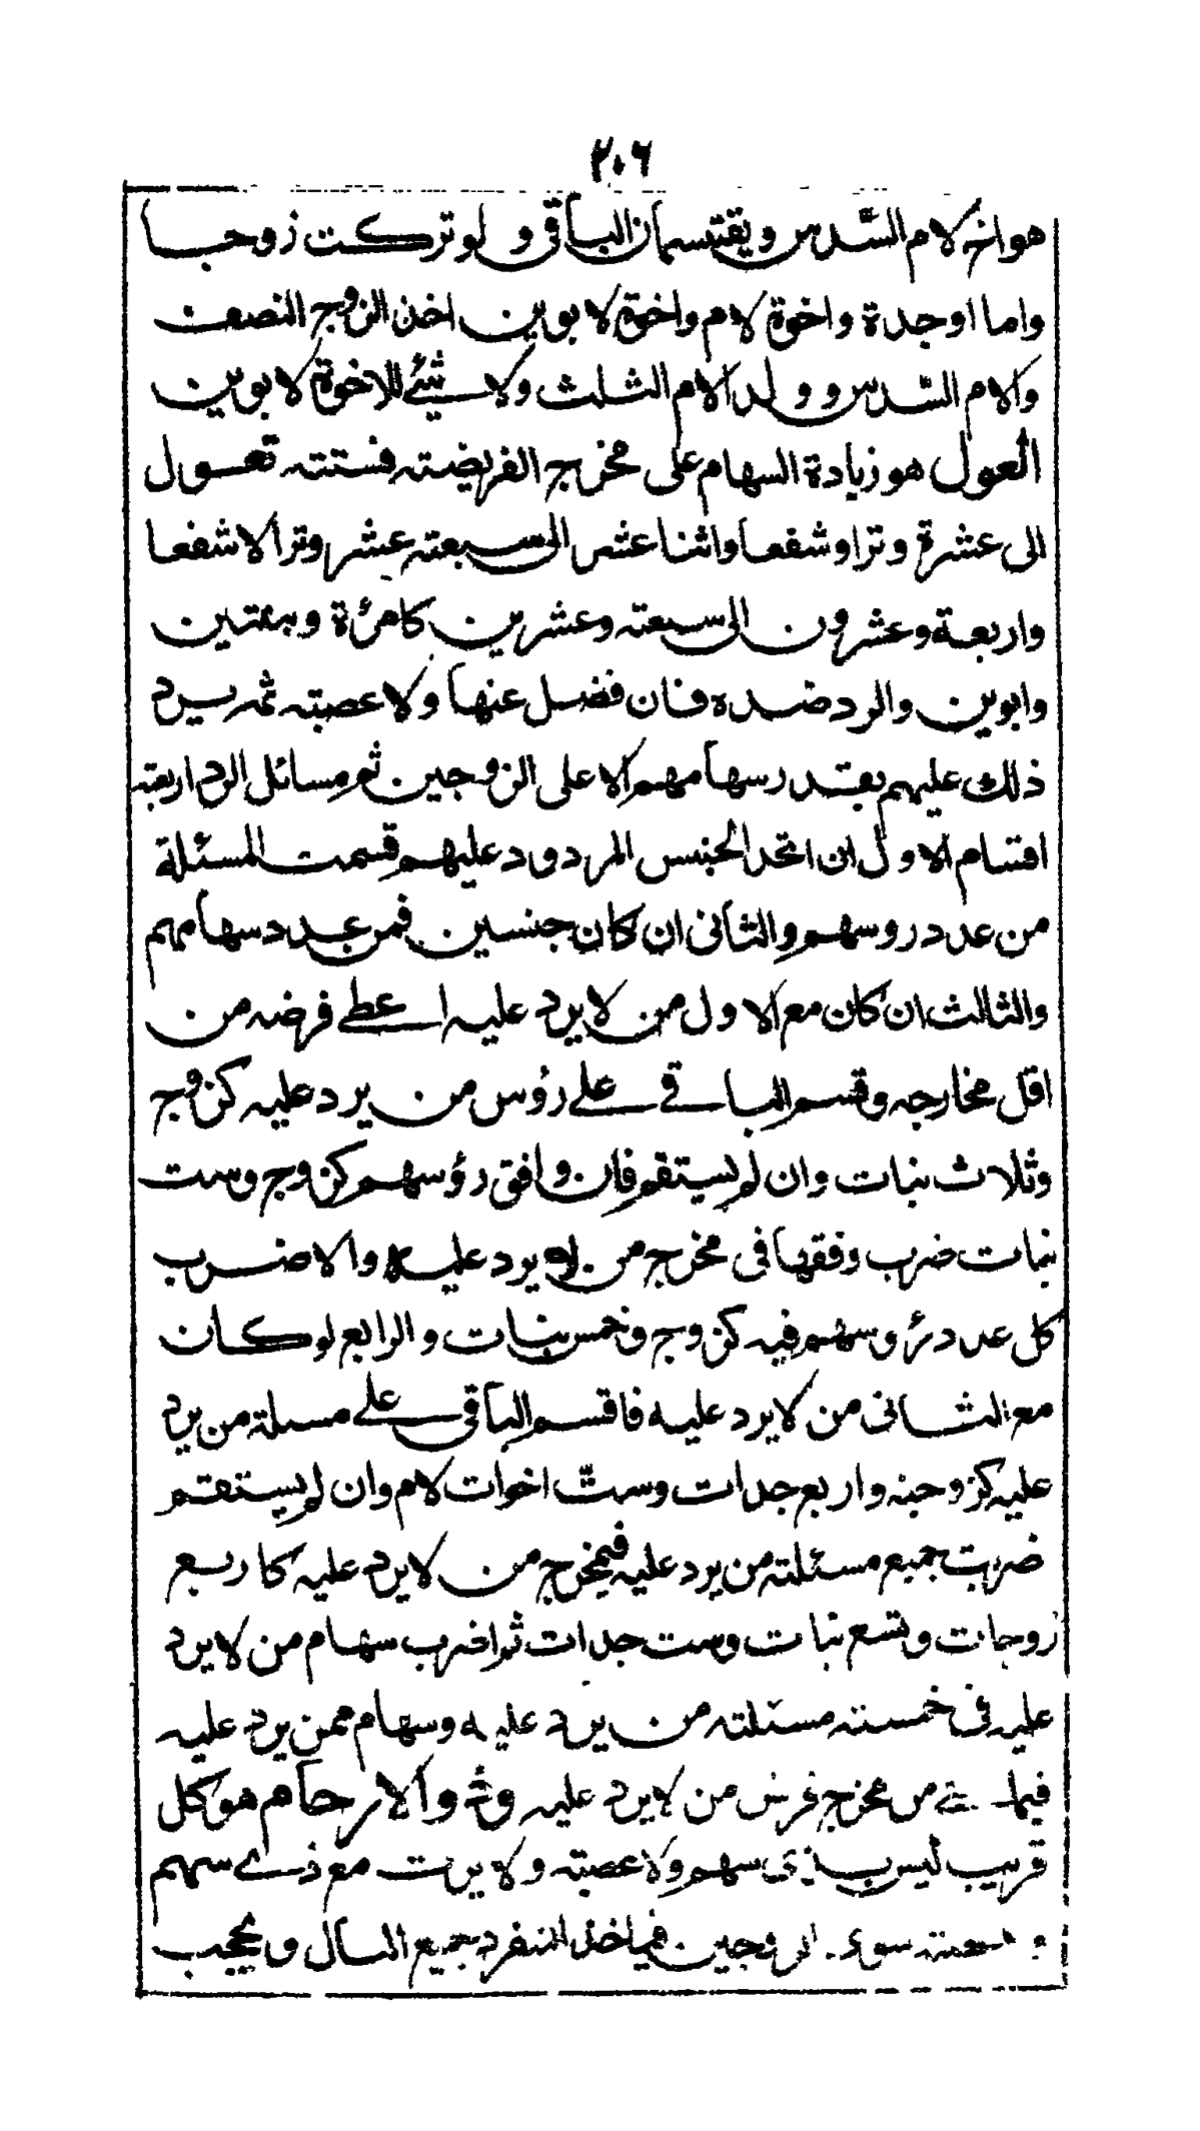 ٢٠٦
هو اخ لام السدس ويقتسمان الباقى و لو تركت زوجا
واما او جدة واخوة لام واخوة لا بوين اخذ الزوج النصف
والام السدس وولد الام الثلث ولا شيئ للاخوة لا بوين
العول هو زيادة السهام على مخرج الفريضته فستته تعول
الى عشرة وترا وشفعا واثنا عشر الى سبعته عشر وترا لا شفعا
واربعة وعشرون الى سبعته وعشرين كامرئة وبنتين
وابوين والرد ضده فان فضل عنها ولا عصبته ثمه يرد
ذلك عليهم بقدر سهامهم الا على الزوجين ثم مسائل الرد اربعته
اقسام الاول ان اتحد الجنس المردود عليهم قسمت المسئلة
من عدد روسهم والثانى ان كان جنسين فمن عدد سهامهم
والثالث ان كان مع الاول من لا يرد عليه اعطے فرضه من
اقل مخارجه وقسم الباقے علے رؤس من يرد عليه كزوج
وثلاث بنات وان لم يستقم فان وافق رؤسهم كزوج وست
بنات ضرب وفقها فى مخرج من لا يرد عليه والا ضرب
كل عدد رئوسهم فيه كزوج وخمس بنات والرابع لو كان
مع الثانى من لا يرد عليه فاقسم الباقى علے مسلة من يرد
عليه كزوجته واربع جدات وست اخوات لام وان لم يستقم
ضربت جميع مسئلته من يرد عليه فى مخرج من لا يرد عليه كاربع
زوجات وتسع بنات وست جدات ثم اضرب سهام من لا يرد
عليه فى خمسته مسئلته من يرد عليه وسهام ممن يرد عليه
فيما من مخرج فرض من لا يرد عليه وذو الارحام هو كل
قريب ليس بذى سهم ولا عصبته ولا يرث مع ذے سهم
و عصبته سوى الزوجين فياخذ المنفرد جميع المال ويحجب